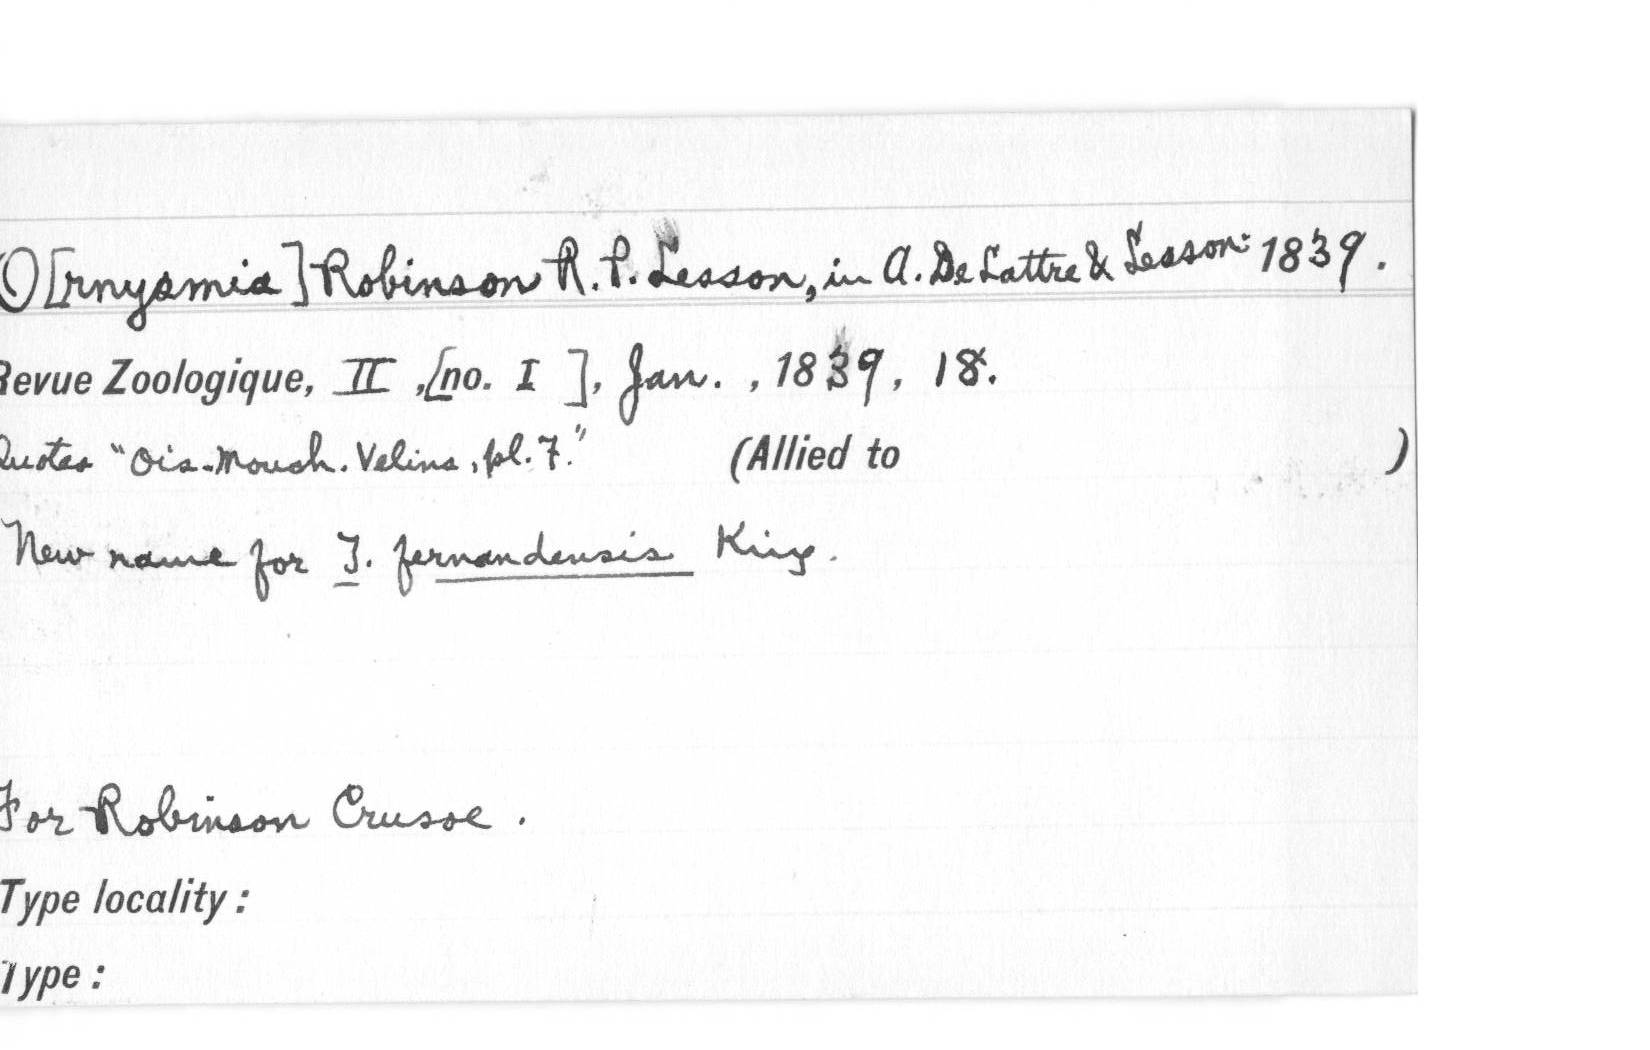 O[rnysmia] Robinson R. P. Lesson, in A. De Lattre & Lesson: 1839.
Revue Zoologique, II, [no. I], Jan., 1839, 18.
Quotes "Ois.-Mouch. Velins, pl. 7." (Allied to )
New name for T. fernandensis King.
For Robinson Crusoe.
Type locality:
Type: